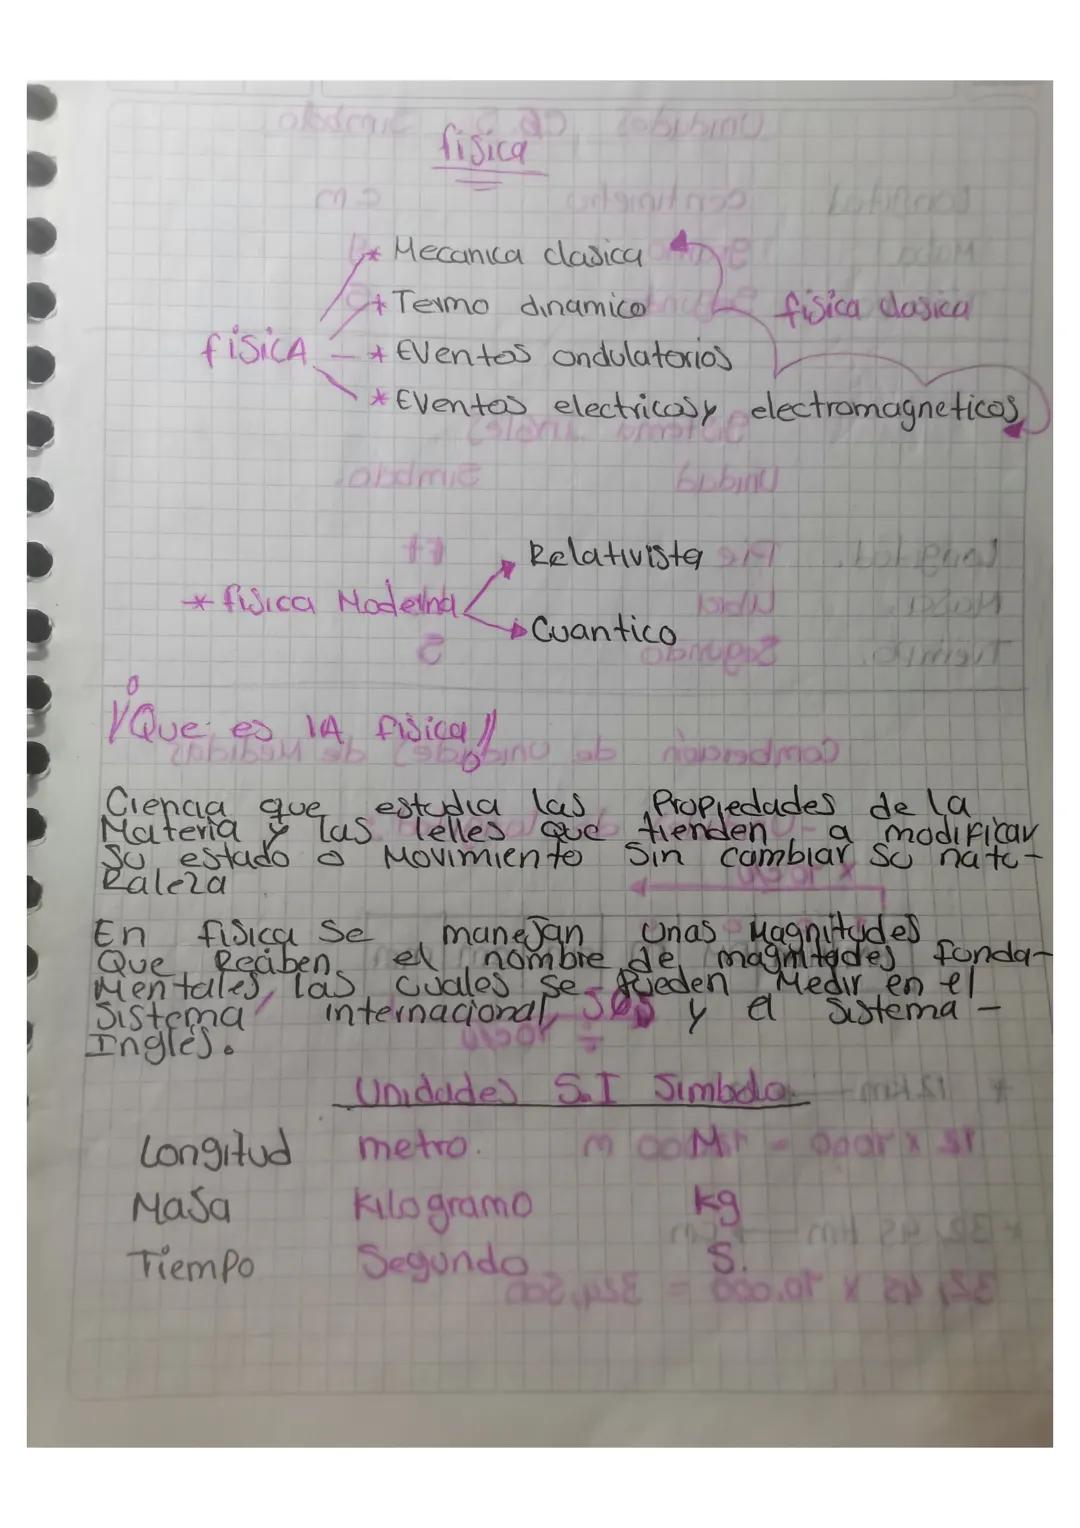 fisica
* Mecanica clasica
* Termo dinamico
fisica clasica
fisicA
* Eventos ondulatorios
* Eventos electricos y electromagneticos
Relativista
* fisica Moderna
Cuantico
¿Que es lA fisica//
Ciencia que estudia las Propiedades de la
Materia y las lelles que tienden a modificar
Su estado o Movimiento Sin cambiar su natu-
Raleza
En fisica Se manejan Unas Magnitudes
Que Reciben el nombre de magnitudes fonda-
Mentales, las cuales se pueden Medir en el
Sistema internacional, y el Sistema -
Ingles.
Unidades S.I Simbolo
Longitud metro. M
Masa Kilogramo kg
Tiempo Segundo S.